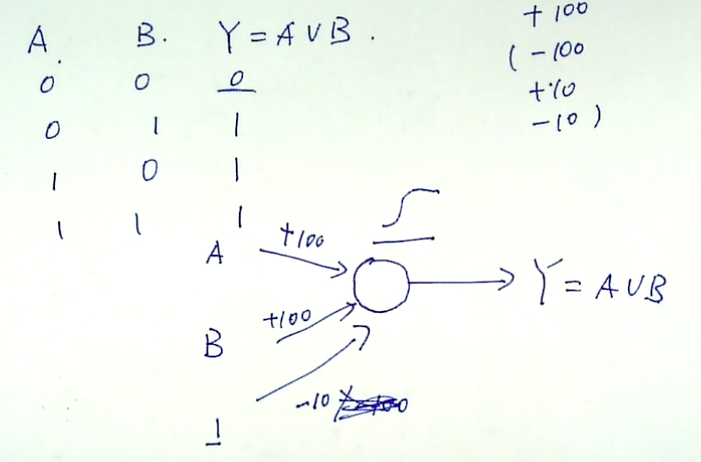 A. B. Y = A ∨ B.
0 0 0
0 1 1
1 0 1
1 1 1
+100
(-100
+10
-10)
A +100
B +100
1 -10
Y = A ∪ B